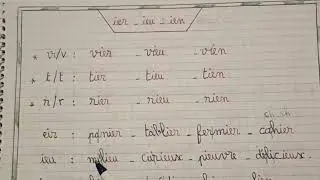 ier - ieu - ien
* v/v : vier - vieu - vien
* t/t : tier - tieu - tien
* r/r : rier - rieu - rien
ch ch
eir : panier - tablier - fermier - cahier
ieu : milieu - curieux - pieuvre - délicieux